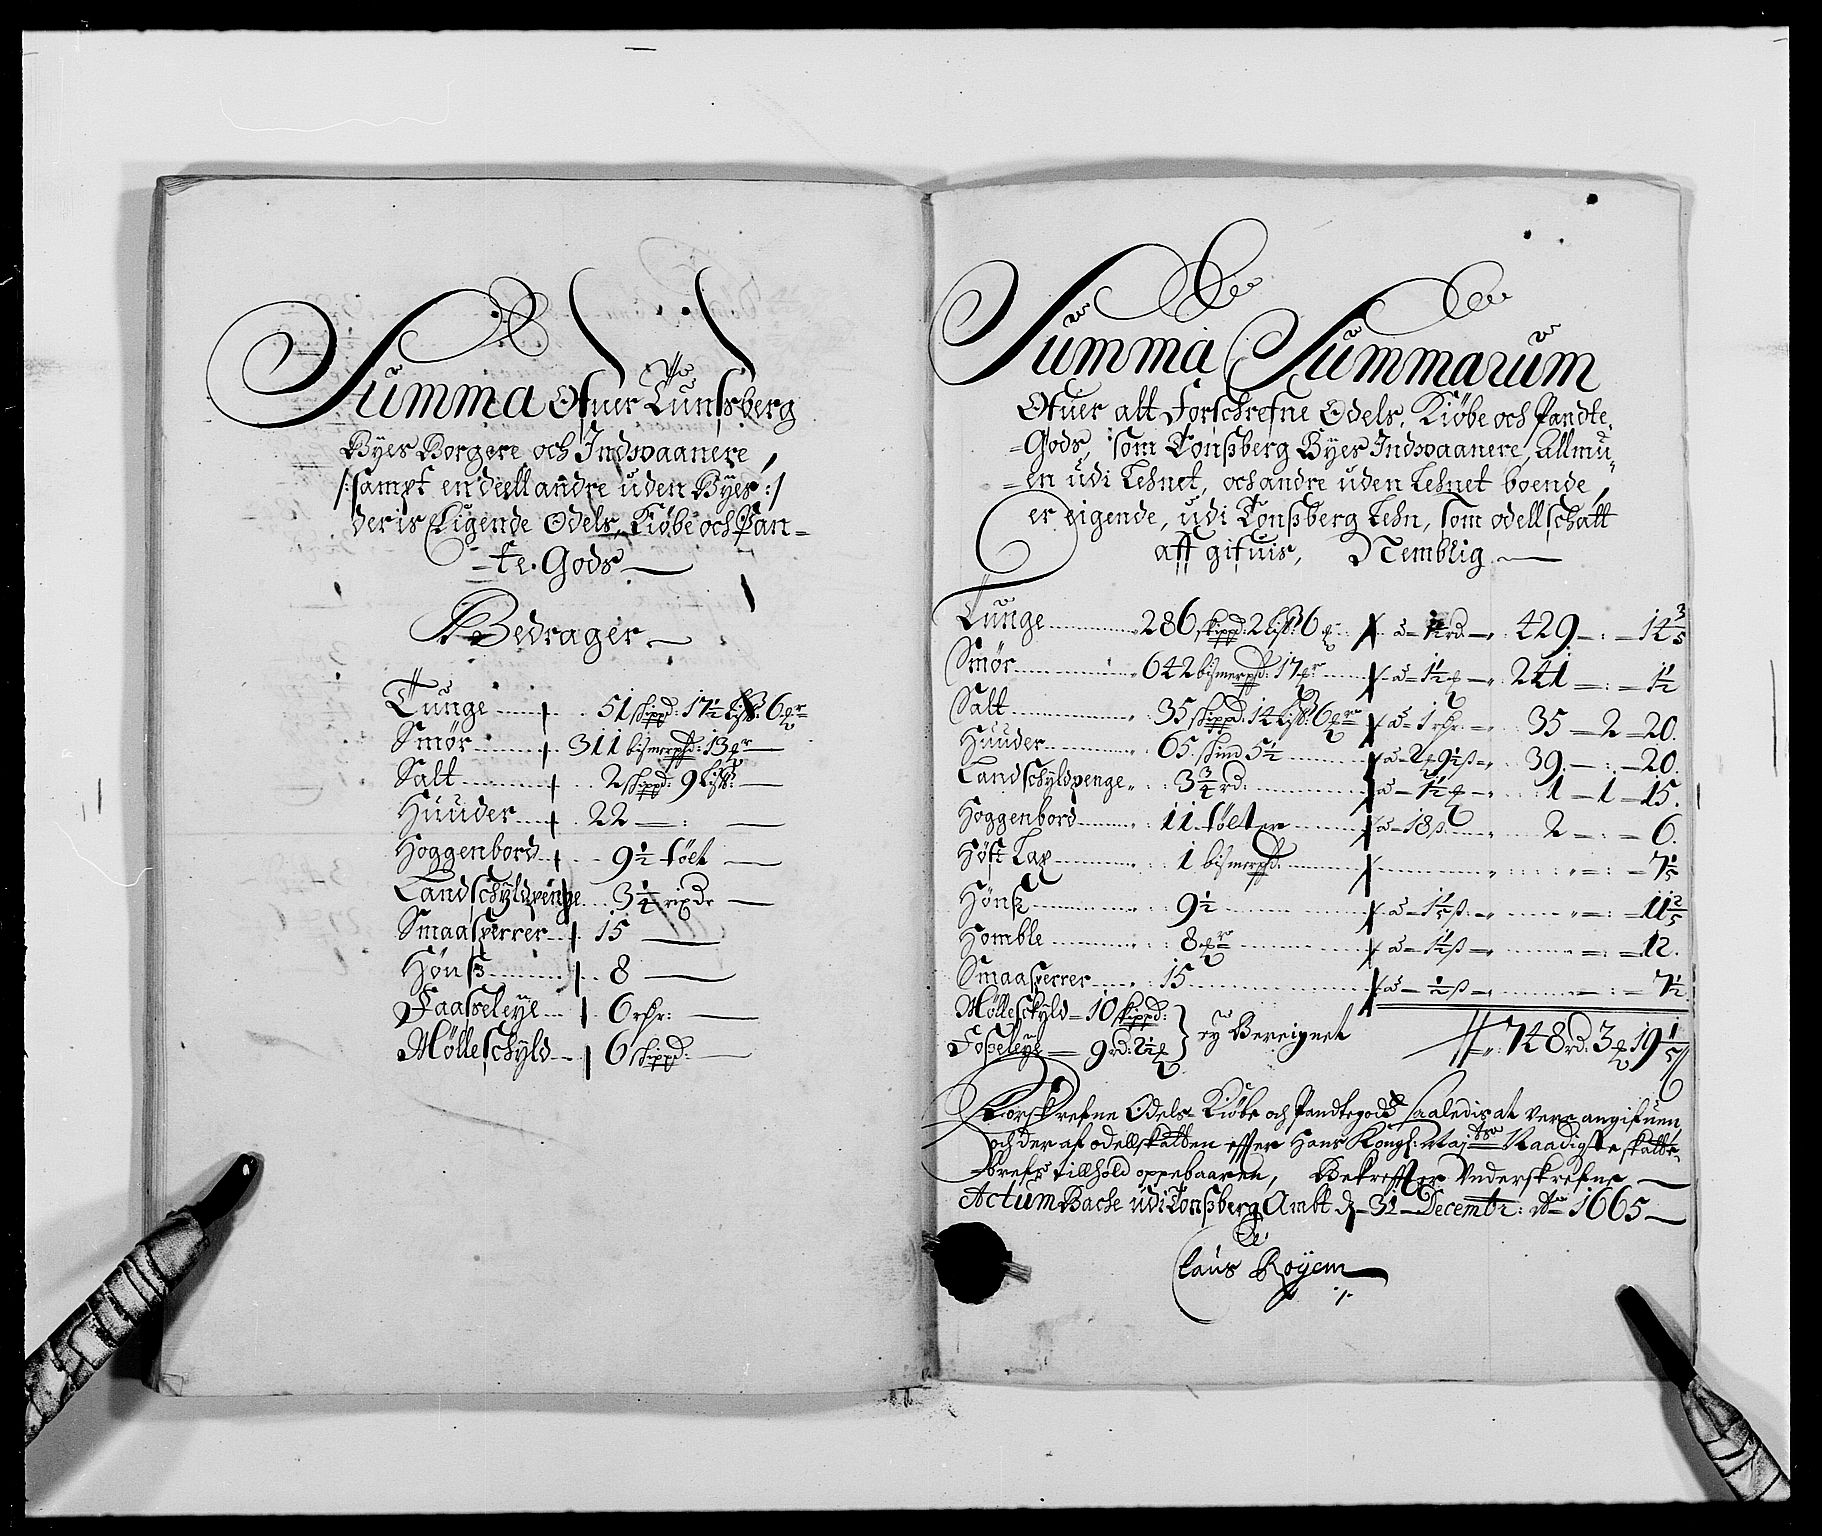 Summa Ofuer Tunsberg
Byes Borgere och Indvaanere,
/:sampt en deell andre uden Byes:/
deris Eigende Odels, Kiøbe och Pan-
-te-Gods
Bedrager
Tunge 51 skippd: 17½ lispd: 6 mr
Smør 311 bismerpd: 13 mr
Salt 2 skippd: 9 lispd:
Huuder 22
Hoggenbord 9½ tølt
Landschyldpenge 3¼ rixdr
Smaasperrer 15
Hønss 8
Faasseleye 6 rdr:
Mølleschyld 6 skippd:
Summa Summarum
Ofuer alt Forschrefne Odels, Kiøbe och Pandte-
-Gods, som Tonsberg Byes Indvaanere, Allmu-
-en udi Lehnet, och andre uden Lehnet boende,
er eigende, udi Tonsberg Lehn, som odellschatt
aff gifuis, Nemblig
Tunge 286 skippd: 2 lispd: 6 mr a 1½ rd 429 - : - 14 3/5
Smør 642 bismerpd: 17 mr a 1½ mk 241 - : - 1½
Salt 35 skippd: 14 lispd: 6 mr a 1 rdr 35 - 2 - 20.
Huuder 65 skind 5½ a 2 mk 9½ ß 39 - : - 20.
Landschyldpenge 3¾ rd: a 1½ mk 1 - 1 - 15.
Hoggenbord 11 tølter a 18 ß 2 - : - 6.
Høst Lax 1 bismerpd. - : - 7 1/5
Hønss 9½ a 1 1/5 ß - : - 11 2/5
Homble 8 mr a 1½ ß - : - 12.
Smaasperrer 15 a ½ ß - : - 7½
Mølleschyld - 10 skippd:
Fosseleye - 9 rd: 2½ mk } ey Bereignet 748 rd. 3 mk 19 1/5
Forskrefne Odels- Kiøbe och Pandtegods saaledis at vere angifuen,
och der af odellskatten effter Hans Kongl: Maytts Naadigste skatte-
-brefs tillhold oppebaaren, Bekreffter Underskrefne
Actum Bache udi Tonsberg Ambt d. 31 Decembr: Ao 1665
Claus Røyem